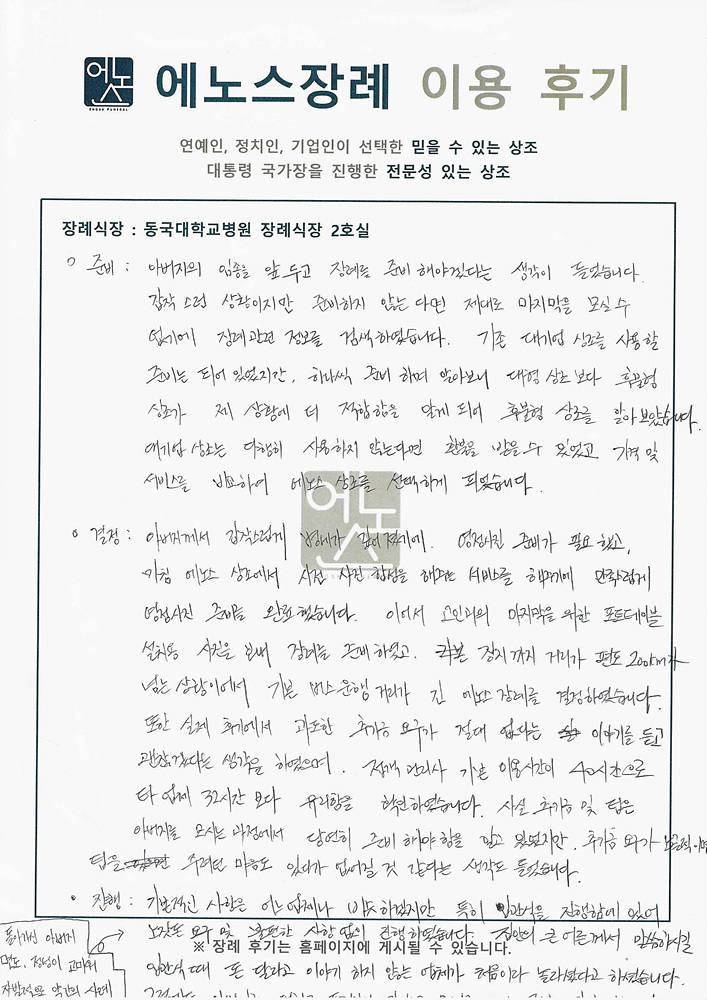 에노스
ENOSH FUNERAL
에노스장례 이용 후기
연예인, 정치인, 기업인이 선택한 믿을 수 있는 상조
대통령 국가장을 진행한 전문성 있는 상조
장례식장 : 동국대학교병원 장례식장 2호실
○ 준비 : 아버지의 임종을 앞두고 장례를 준비해야겠다는 생각이 들었습니다.
갑작스런 상황이지만 준비하지 않는다면 제대로 마지막을 모실 수
없기에 장례관련 정보를 검색하였습니다. 기존 대기업 상조를 사용할
준비는 되어 있었지만, 하나씩 준비하며 알아보니 대형 상조보다 후불형
상조가 제 상황에 더 적합함을 알게 되어 후불형 상조를 알아보았습니다.
대기업 상조는 다행히 사용하지 않는다면 환불을 받을 수 있었고 가격 및
서비스를 비교하여 에노스 상조를 선택하게 되었습니다.
○ 결정 : 아버지께서 갑작스럽게 병세가 깊어졌기에, 영정사진 준비가 필요했고,
마침 에노스 상조에서 사전 사진 합성을 해주는 서비스를 해주기에 만족스럽게
영정사진 준비를 완료했습니다. 이어서 고인과의 마지막을 위한 포토테이블
설치용 사진을 보내 장례를 준비하였고, 장지까지 거리가 편도 200km가
넘는 상황이어서 기본 버스운행 거리가 긴 에노스 장례를 결정하였습니다.
또한 실제 후기에서 과도한 추가금 요구가 절대 없다는 이야기를 듣고
괜찮겠다는 생각을 하였으며, 접객 관리사 기본 이용시간이 40시간으로
타 업체 32시간 보다 유리함을 확인하였습니다. 사실 추가금 및 팁은
아버지를 모시는 과정에서 당연히 준비해야 함을 알고 있었지만, 추가금 요구가
팁을 주려던 마음도 있다가 없어질 것 같다는 생각도 들었습니다.
• 진행 : 기본적인 사항은 어느 업체나 비슷하겠지만 특히 입관식을 진행함에 있어
노잣돈 요구 및 불편한 사항 없이 진행하였습니다. 집안의 큰 어른께서 말씀하시길
※ 장례 후기는 홈페이지에 게시될 수 있습니다.
입관식 때 돈 달라고 이야기 하지 않는 업체가 처음이라 놀라웠다고 하셨습니다.
돌아가신 아버지